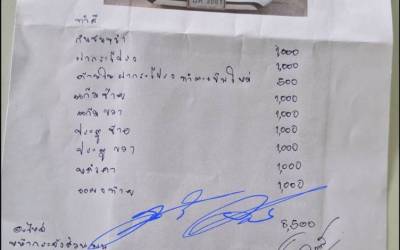 ทำสี
กันชนหน้า 1,000
ฝากระโปรง 1,000
ด้านใน ฝากระโปรง ทำตะเข็บใหม่ 500
แก้มซ้าย 1,000
แก้ม ขวา 1,000
ประตู ซ้าย 1,000
ประตู ขวา 1,000
หลังคา 1,000
1,000
8,500
อะไหล่